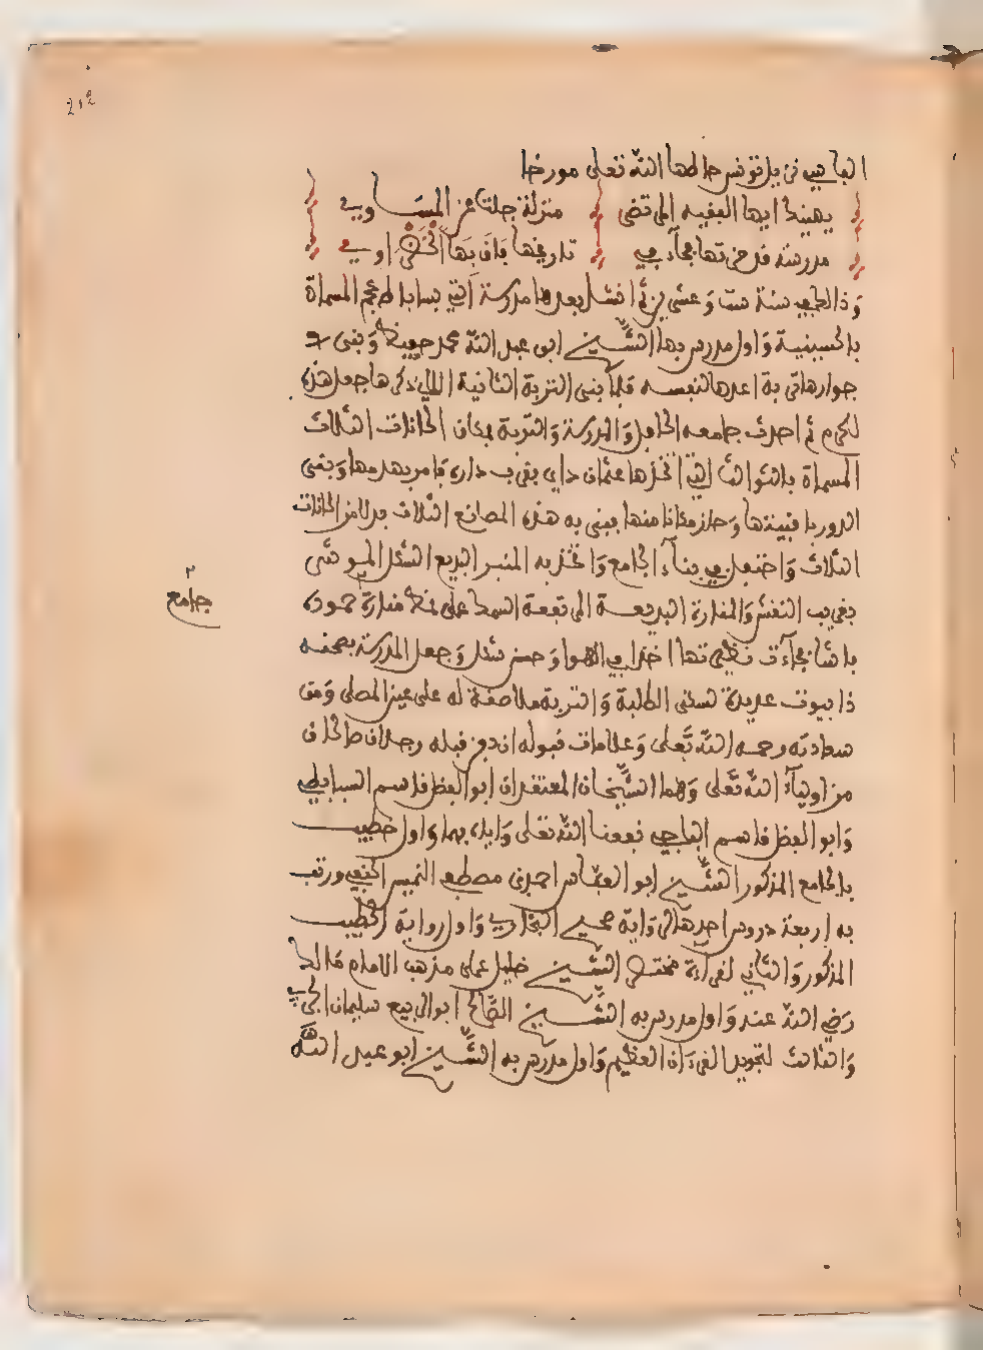 212
الباهي في بلد تونس حاطها الله تعلى مورخا
يهنيك ايها الفقيه المرتضى منزلة جلت عن المساوي
مدرسة قد خزتها فجآء في تاريخها بَاقَ بَهَا
وَذالك في سنة ست وَعشرين ثم انشا بعدها مدرسة التي بساباط عجم المسماة
بالحسينية وَاول مدرس بها الشيخ ابو عبد الله محمد وَبنى
جوارها تربة اعدها لنفسه فلما بنى التربة الثانية جعل هذه
ثم احدث جامعه الحافل وَالمدرسة وَالتربة بمكان الحانات الثلاث
المسماة التي اتخذها عثمان داي بقرب داره فامر بهدمها وَبنى
الدور وَحاز مكانا منها فبنى به هذه المصانع الثلاث بدلا من الحانات
الثلاث وَاحتفل في بنآء الجامع وَاتخذ به المنبر البديع الشكل الموشى
بغريب النقش وَالمنارة البديعة المرتفعة السمك على منارة حمودة
باشا فجآءت نظيرتها اخذا في الهوا وَحسن شكل وَجعل المدرسة بصحنه
ذا بيوت عديدة لسكنى الطلبة وَالتربة ملاصقة له على يمين المصلى وَمن
سعادته رحمه الله تَعلى وَعلامات قبوله ان دفن قبله رجلان صالحان
من اوليآء الله تعلى وَهما الشيخان المعتقدان ابو الفضل قاسم السبابطي
وَابو الفضل قاسم الباجي نفعنا الله تعلى وَاياه بهما وَاول خطيب
بالجامع المذكور الشيخ ابو العبّاس احمد بن مصطفى الحنفي ورتب
به اربعة دروس احدها لرواية صحيح البخاري وَاول رواية الخطيب
المذكور وَالثاني لقرآءة مختصر الشيخ خليل على مذهب الامام مالك
رَضي الله عنه وَاول مدرس به الشيخ الصّالح ابو الربيع سليمان
وَالثالث لتجويد القرءان العظيم وَاول مدرس به الشيخ ابو عبد الله
٢
جامع